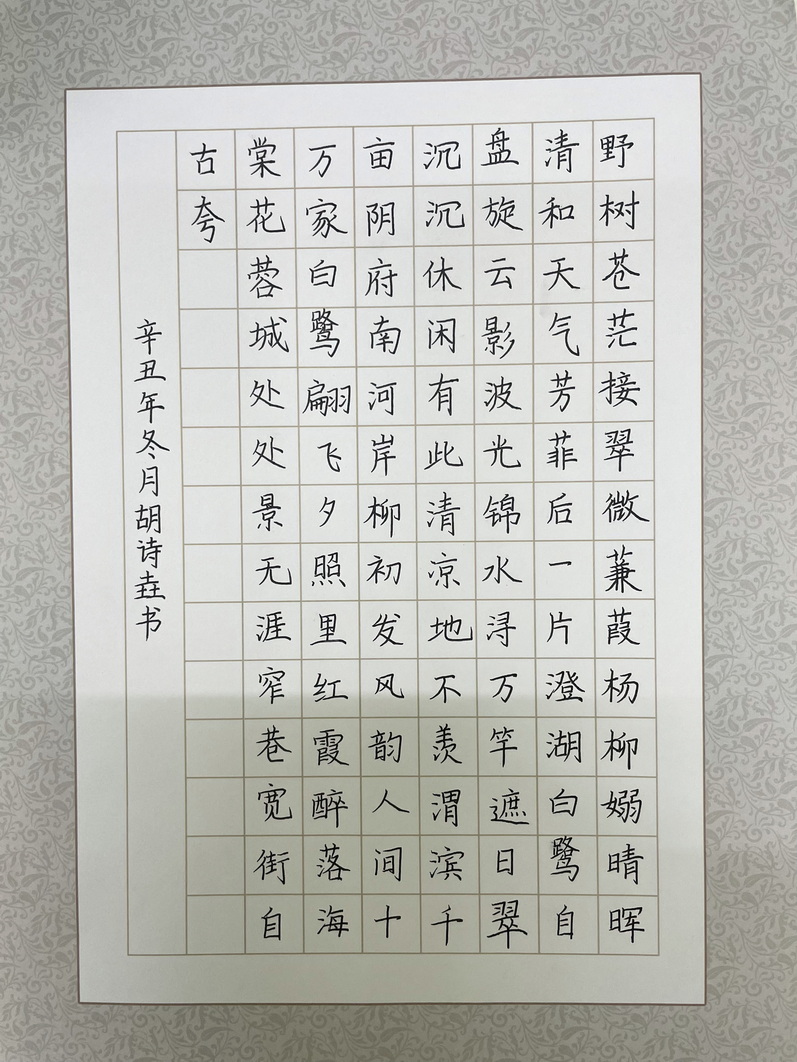 野树苍茫接翠微蒹葭杨柳嫋晴晖
清和天气芳菲后一片澄湖白鹭自
盘旋云影波光锦水浔万竿遮日翠
沉沉休闲有此清凉地不羡渭滨千
亩阴府南河岸柳初发风韵人间十
万家白鹭翩飞夕照里红霞醉落海
棠花蓉城处处景无涯窄巷宽街自
古夸
辛丑年冬月胡诗垚书